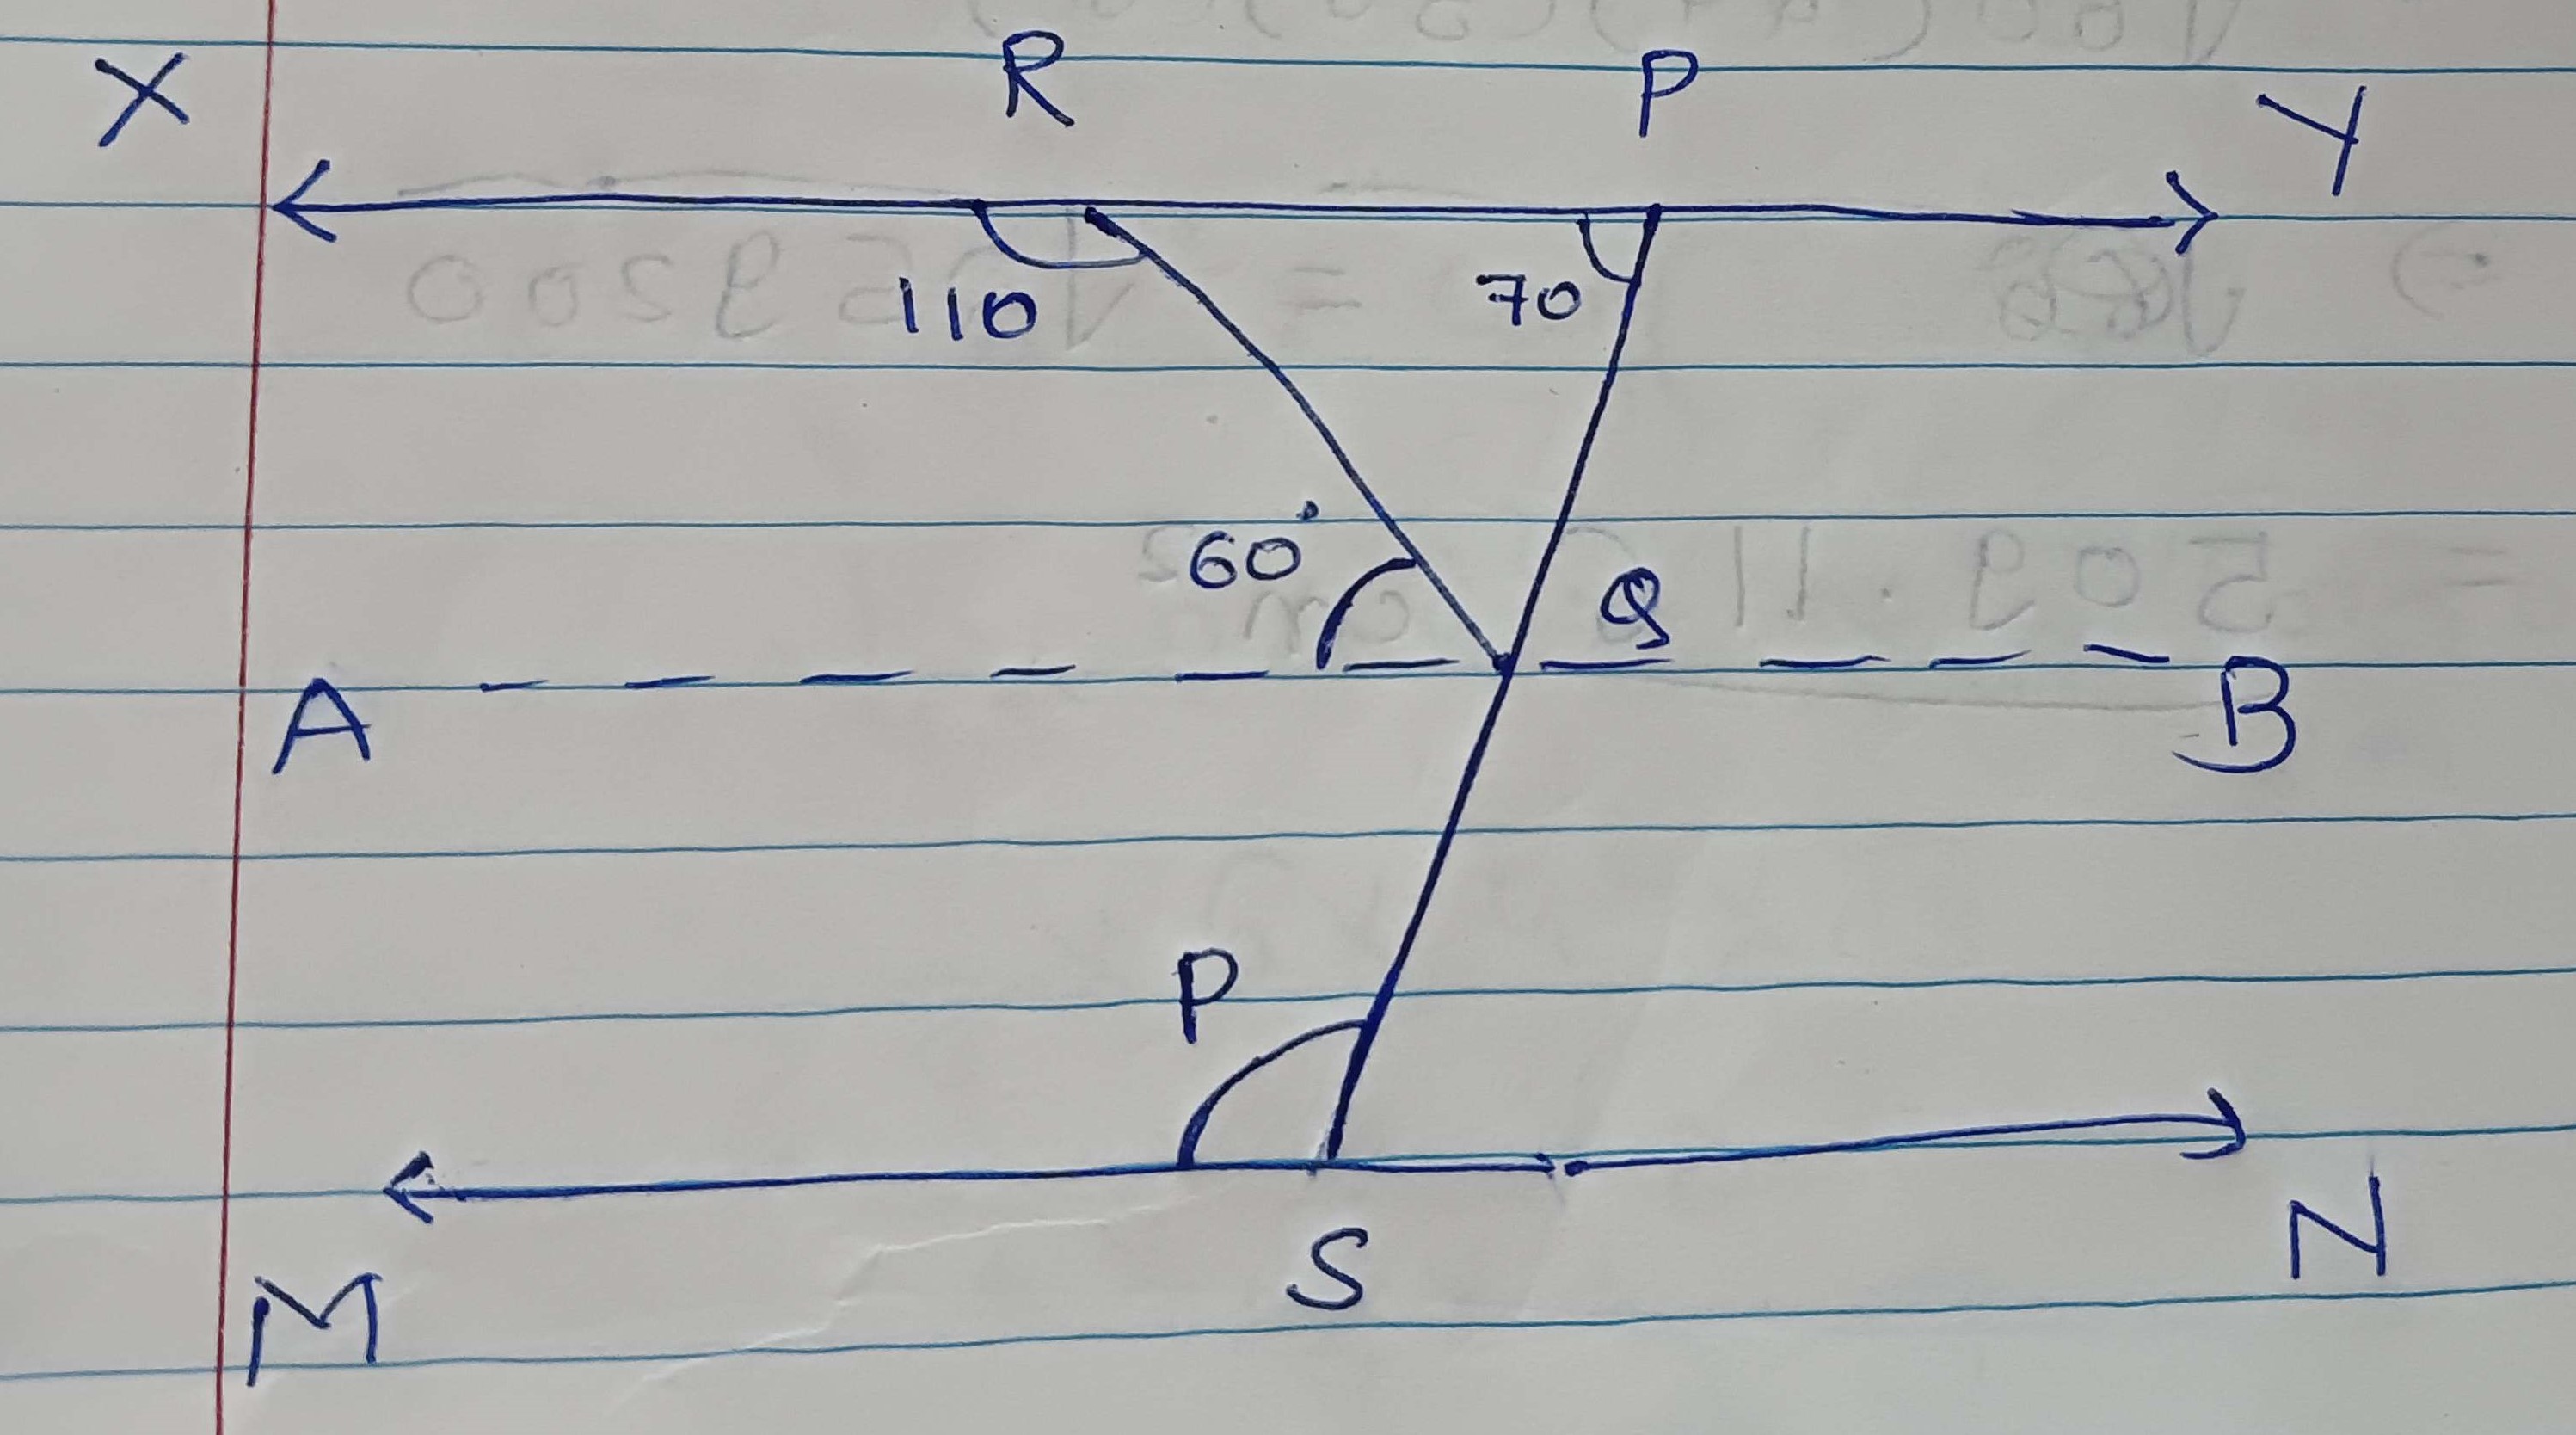 X R P Y
110 70
60°
Q
A B
P
M S N